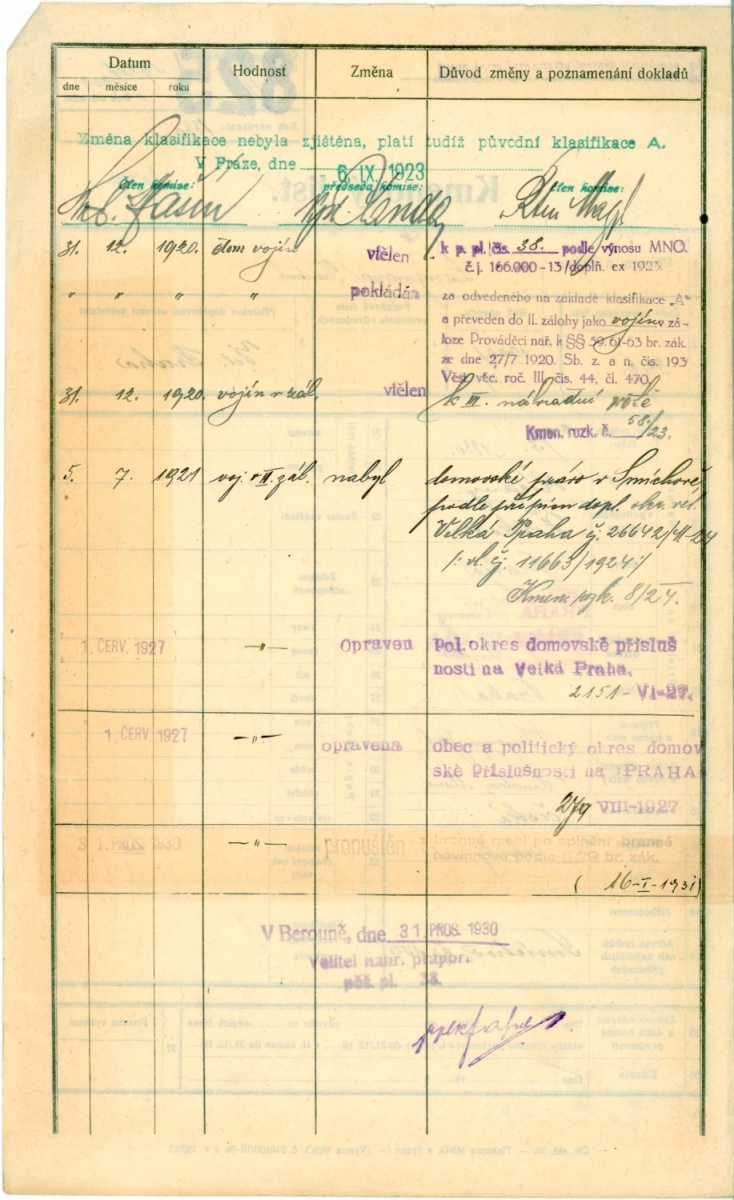 Datum Hodnost Změna Důvod změny a poznamenání dokladů
dne měsíce roku
Změna klasifikace nebyla zjištěna, platí tudíž původní klasifikace A.
V Praze, dne 6. IX. 1923
člen komise: předseda komise: člen komise:
31. 12. 1920. dom. vojín vtělen k p. pl. čís. 38. podle výnosu MNO.
č. j. 166.000-13/doplň. ex 1923.
" " " " pokládán za odvedeného na základě klasifikace „A"
a převeden do II. zálohy jako vojín v zá-
loze Prováděcí nař. k §§ 59, 61-63 br. zák.
ze dne 27/7 1920. Sb. z. a n. čís. 193
Věst. věc. roč. III. čís. 44, čl. 470.
31. 12. 1920. vojín v zál. vtělen k III. náhradní
Kmen. rozk. č. 58/23.
5. 7. 1921 voj. v II. zál. nabyl domovské právo v Smíchově
podle přípisu dopl. okr. vel.
Velká Praha čj. 26642/ -24
/: vl. čj. 11663/1924 :/
Kmen. rozk. 8/24.
1. ČERV. 1927 —"— Opraven Pol. okres domovské přísluš
nosti na Velká Praha.
2151- VI-27.
1. ČERV 1927 —"— opravena obec a politický okres domov
ské příslušnosti na PRAHA
279 VIII-1927
31. PROS. 1930 —"— propuštěn z branné moci po splnění branné
povinnosti podle § 29 br. zák.
( 16-I-1931)
V Berouně, dne 31 PROS. 1930
Velitel nahr. prapor.
pěš. pl. 38.